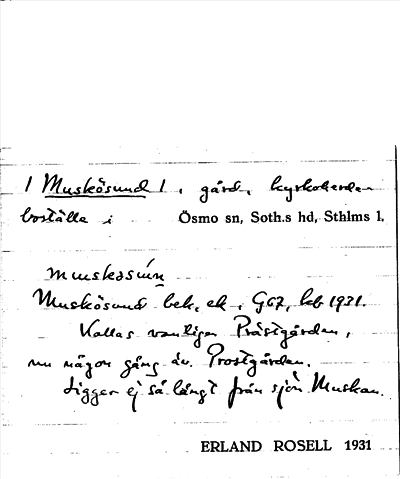 / Muskösund /, gård, kyrkoherde-
boställe i Ösmo sn, Soth.s hd, Sthlms l.
Muskösund bek, ek, G67, kb 1931.
Kallas vanligen Prästgården,
nu någon gång äv. Prostgården.
Ligger ej så långt från sjön Muskan.
ERLAND ROSELL 1931